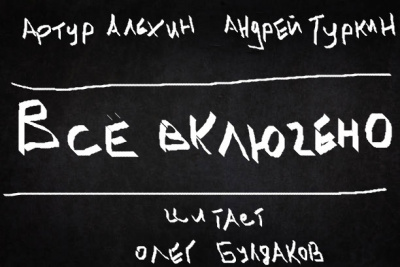 Артур Алёхин Андрей Туркин
Всё включено
читает
Олег Булдаков